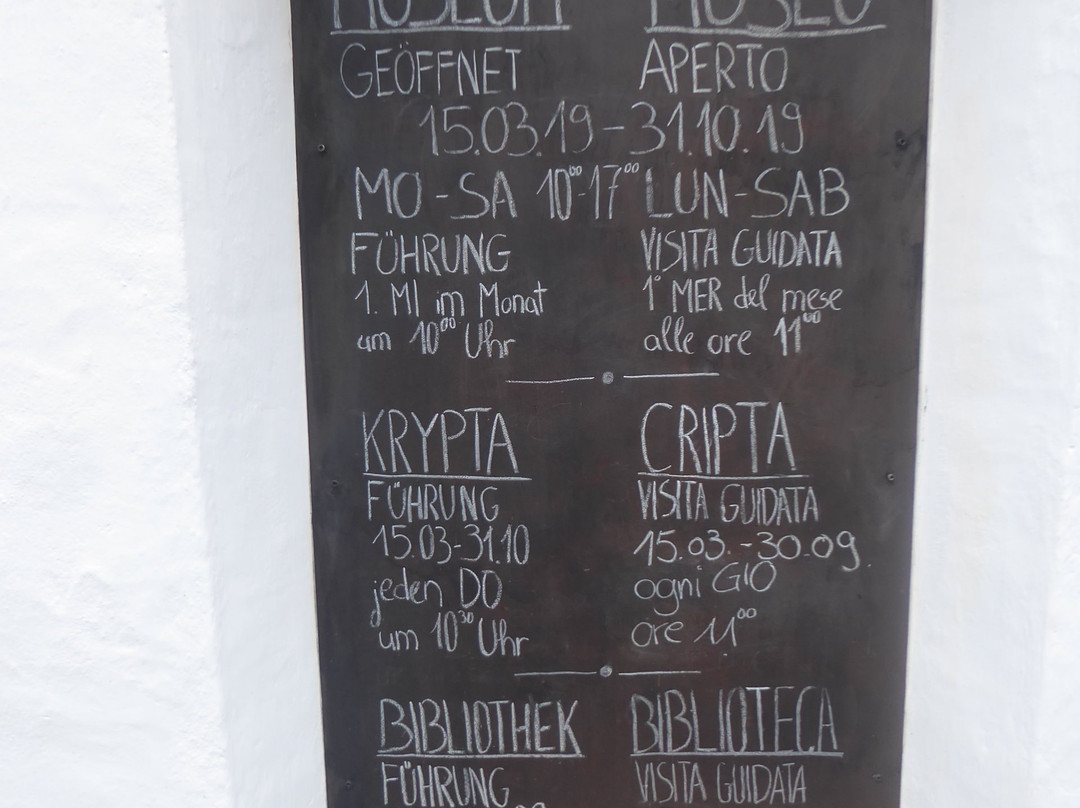 MUSEUM MUSEO
GEÖFFNET APERTO
15.03.19-31.10.19
MO-SA 10⁰⁰-17⁰⁰ LUN-SAB
FÜHRUNG VISITA GUIDATA
1. MI im Monat 1° MER del mese
um 10⁰⁰ Uhr alle ore 11⁰⁰
KRYPTA CRIPTA
FÜHRUNG VISITA GUIDATA
15.03-31.10 15.03.-30.09.
jeden DO ogni GIO
um 10³⁰ Uhr ore 11⁰⁰
BIBLIOTHEK BIBLIOTECA
FÜHRUNG VISITA GUIDATA